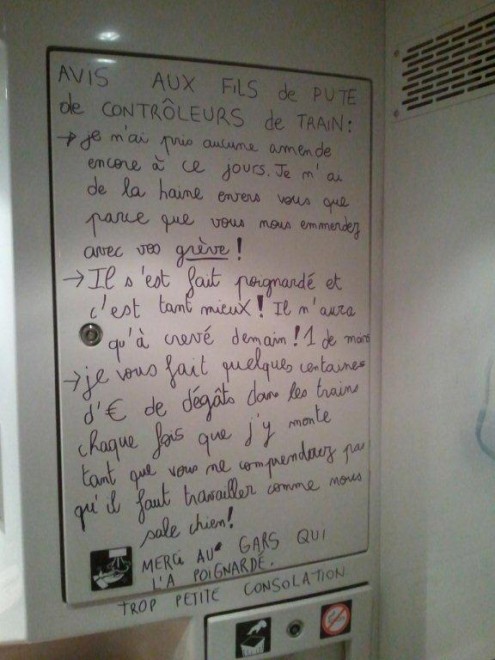 AVIS AUX FILS de PUTE
de CONTRÔLEURS de TRAIN:
→ je n'ai pris aucune amende
encore à ce jours. Je n'ai
de la haine envers vous que
parce que vous nous emmerdez
avec vos grève!
→ Il s'est fait poignardé et
c'est tant mieux! Il n'aura
qu'à crevé demain! 1 de moins
→ je vous fait quelques centaines
d'€ de dégâts dans les trains
chaque fois que j'y monte
tant que vous ne comprendrez pas
qu'il faut travailler comme nous
sale chien!
MERCI AU GARS QUI
L'A POIGNARDÉ.
TROP PETITE CONSOLATION